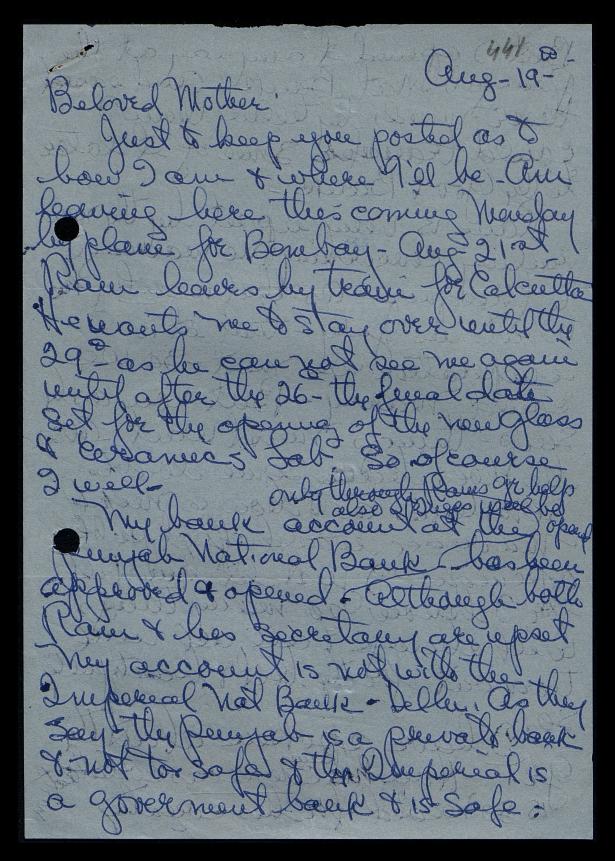 441
Aug-19th-
Beloved Mother
Just to keep you posted as to
how I am & where I'll be. Am
leaving here this coming Monday
by plane for Bombay - Aug-21st.
Ram leaves by train for Calcutta
He wants me to stay over until the
29th as he can not see me again
until after the 26th the final date
set for the opening of the new Glass
& Ceramics Lab. So of course
I will-
only through Ram's gr help
also
My bank account at the opened
Punjab National Bank - has been
approved & opened - Although both
Ram & his secretary are upset
my account is not with the
Imperial Nat Bank - Delhi. As they
say the Punjab is a private bank
& not too safe & the Imperial is
a goverment bank & is safe.